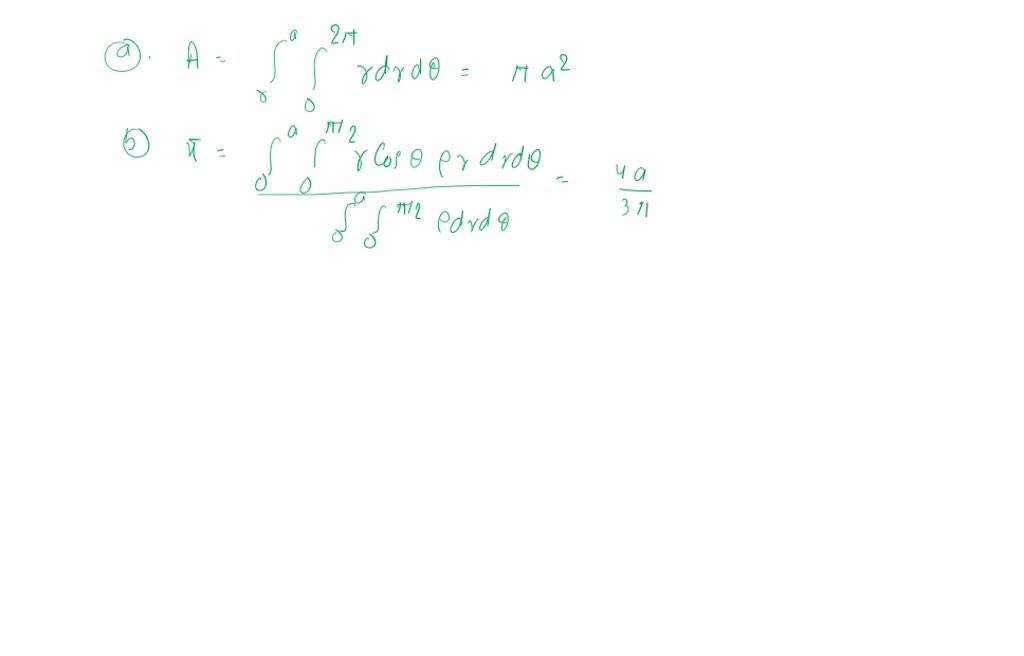 a. A = ∫_r^a ∫_0^{2π} r dr dθ = π a²
b x̄ = (∫_0^a ∫_0^{π/2} r Cos θ ρ r dr dθ) / (∫_0^a ∫_0^{π/2} ρ dr dθ) = 4a / 3π